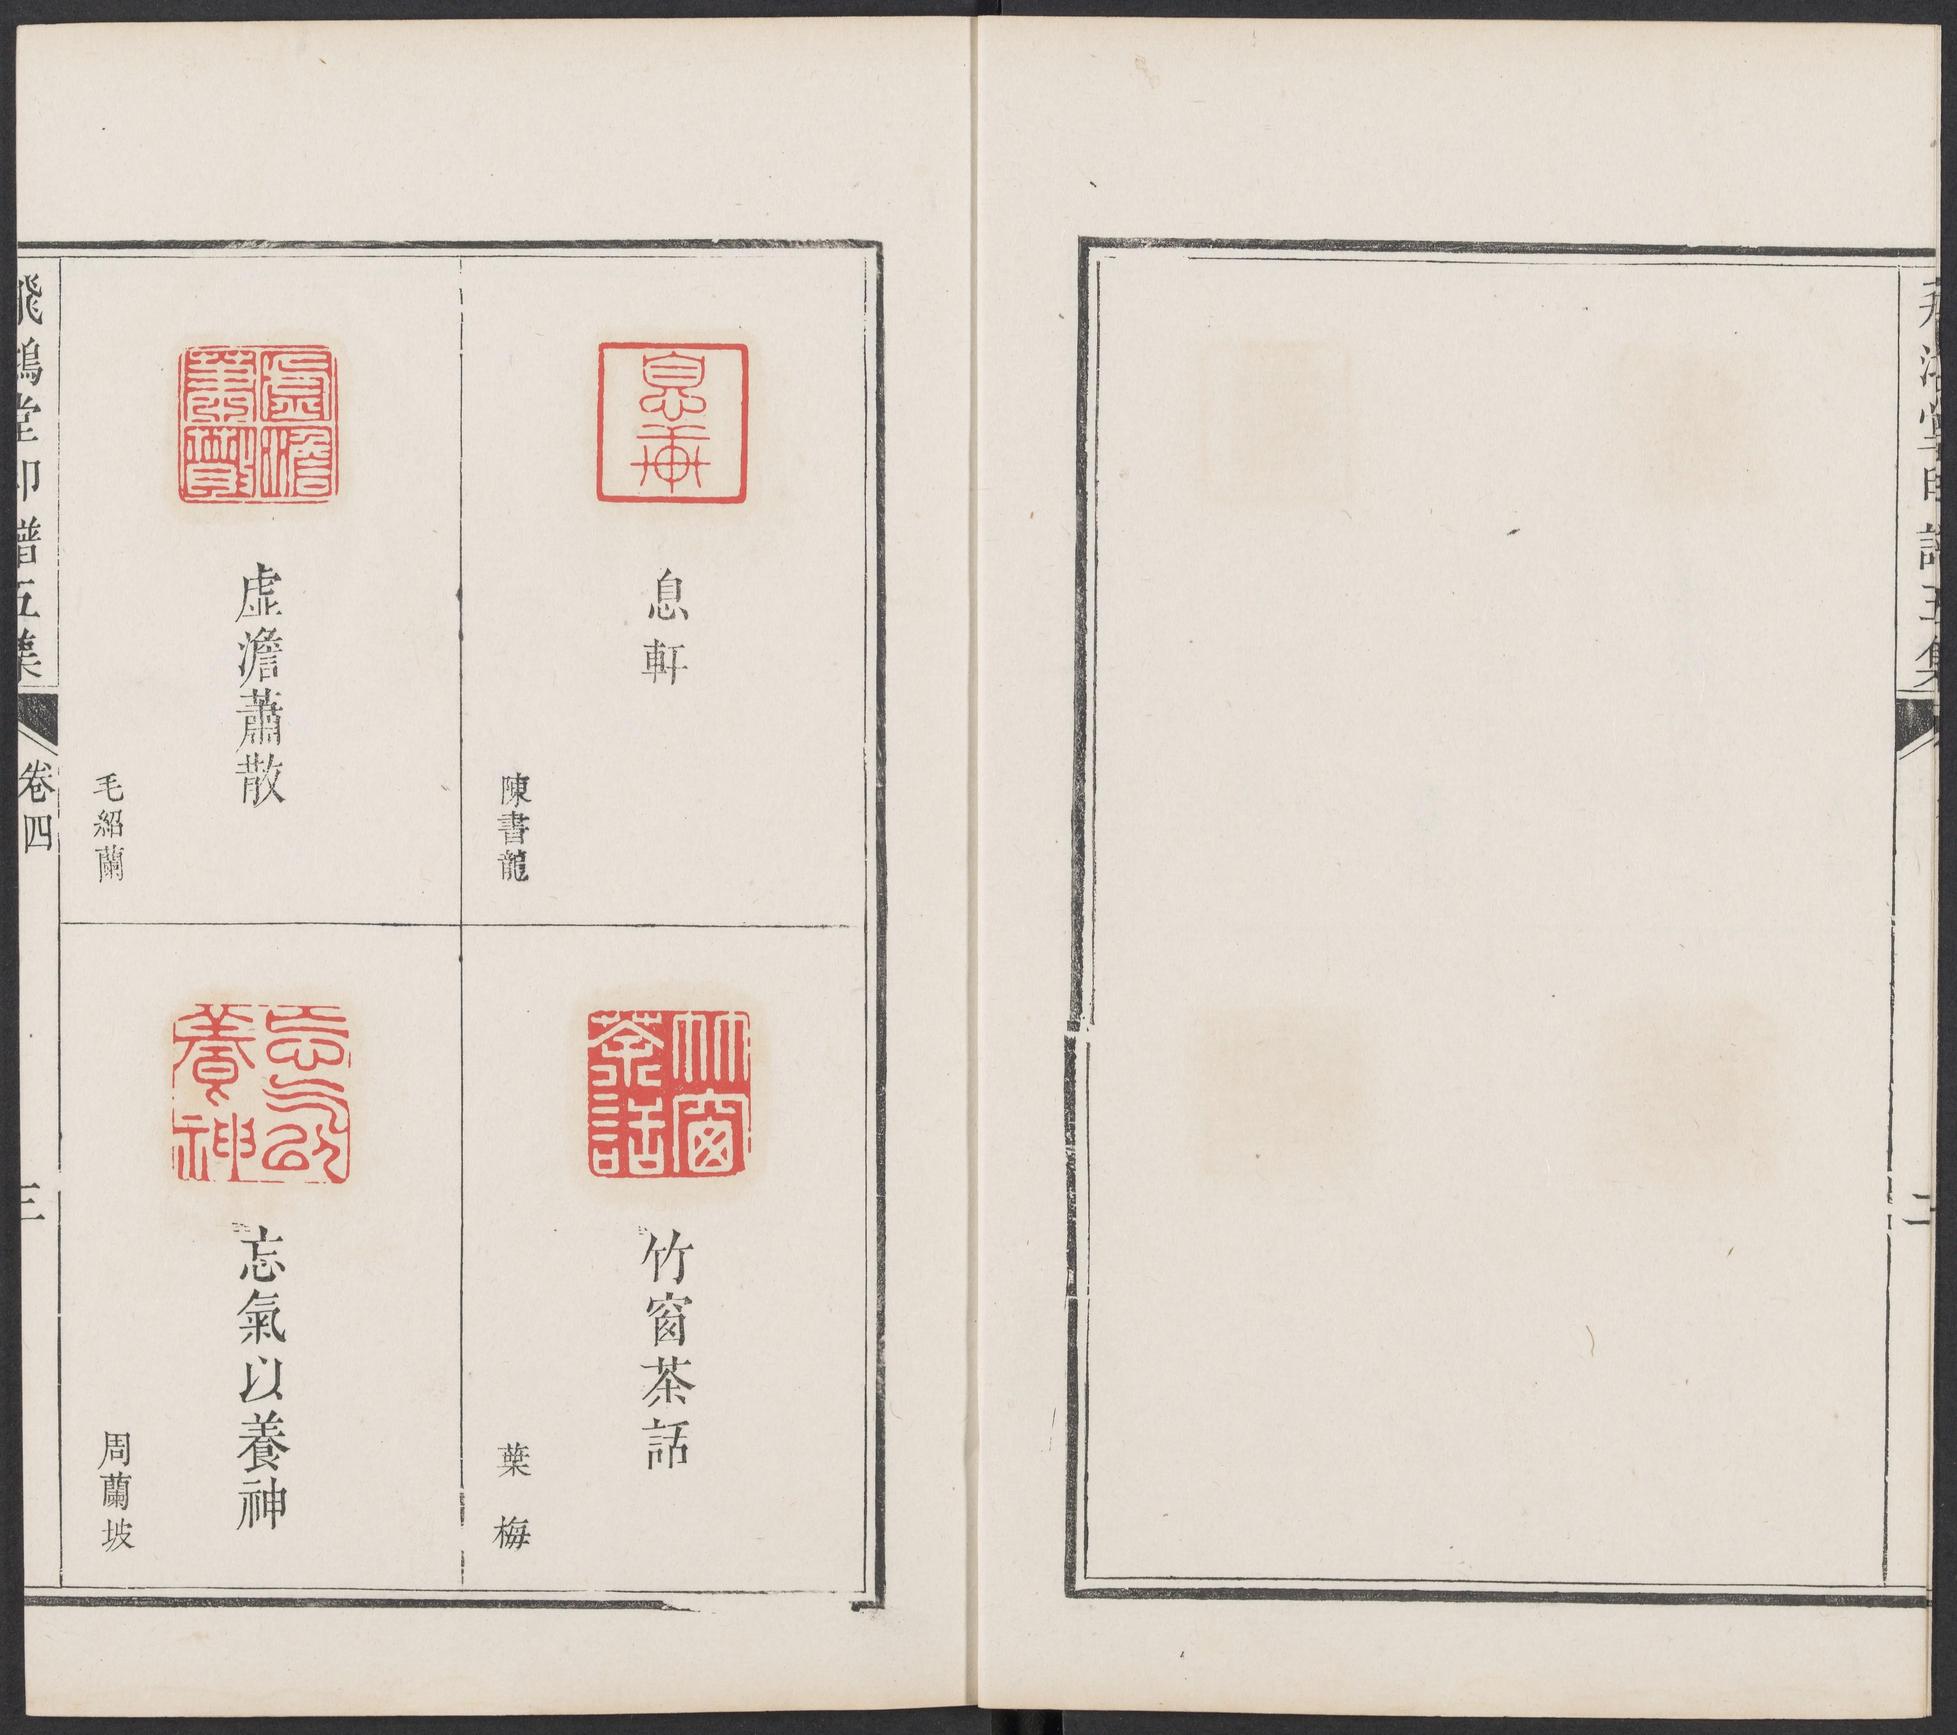 飛鴻堂印譜五集
二
息軒
陳書龍
竹窗茶話
葉梅
虛澹蕭散
毛紹蘭
忘氣以養神
周蘭坡
飛鴻堂印譜五集
卷四
三